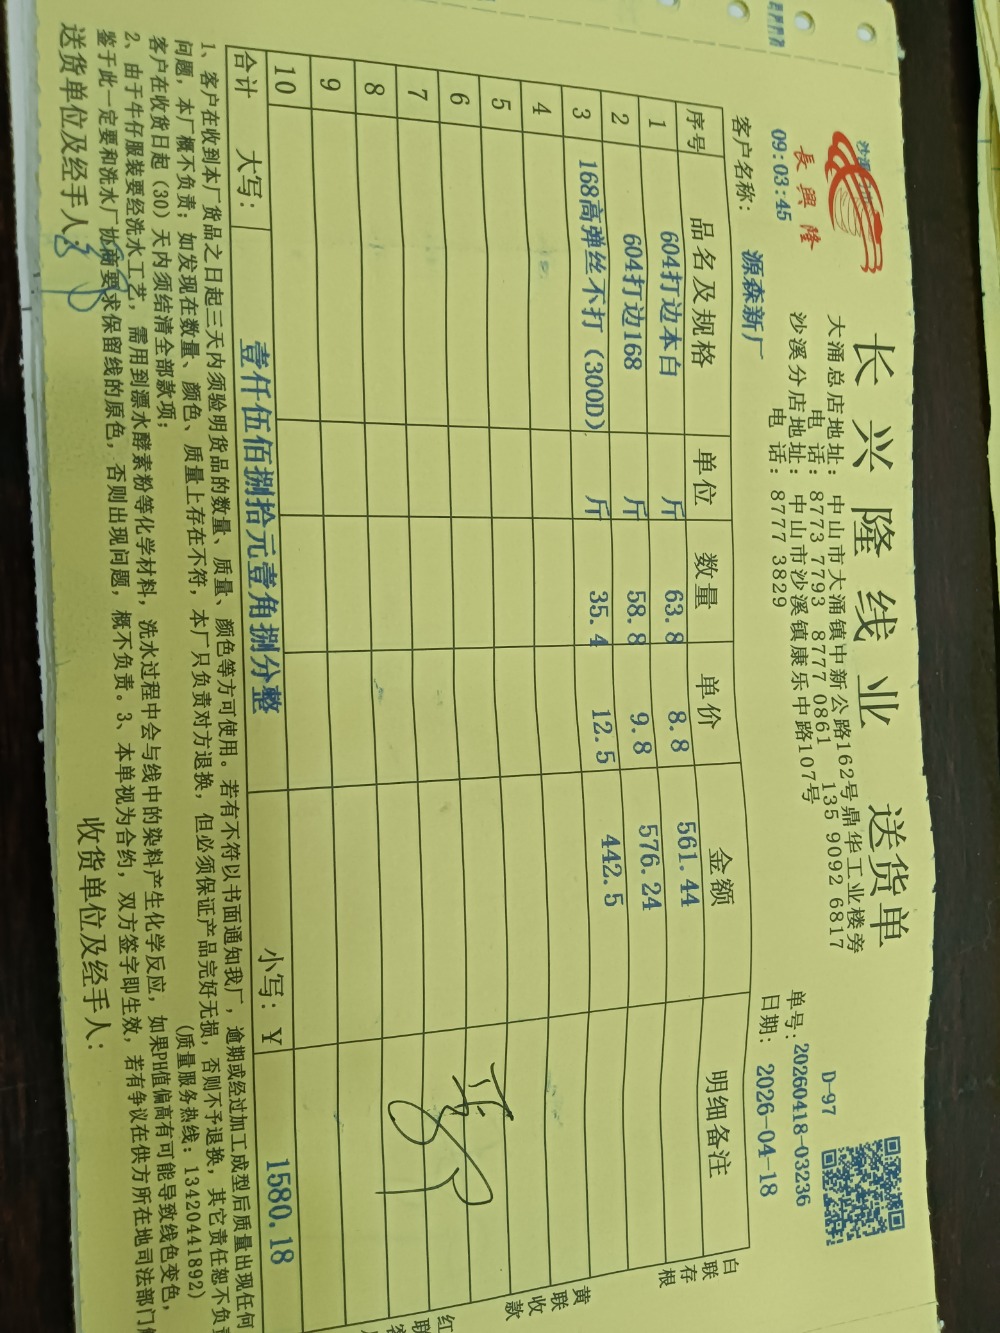 长兴隆线业 送货单
長興隆
09:03:45
大涌总店地址: 中山市大涌镇中新公路162号鼎华工业楼旁
电 话: 8773 7793 8777 0861 135 9092 6817
沙溪分店地址: 中山市沙溪镇康乐中路107号
电 话: 8777 3829
D-97
单号: 20260418-03236
日期: 2026-04-18
客户名称: 源森新厂
序号 品名及规格 单位 数量 单价 金额 明细备注
1 604打边本白 斤 63.8 8.8 561.44
2 604打边168 斤 58.8 9.8 576.24
3 168高弹丝不打（300D） 斤 35.4 12.5 442.5
4
5
6
7
8
9
10
合计 大写: 壹仟伍佰捌拾元壹角捌分整 小写: ¥ 1580.18
白联存根
黄联收款
红联客
1、客户在收到本厂货品之日起三天内须验明货品的数量、质量、颜色等方可使用。若有不符以书面通知我厂，逾期或经过加工成型后质量出现任何
问题，本厂概不负责；如发现在数量、颜色、质量上存在不符，本厂只负责对方退换，但必须保证产品完好无损，否则不予退换，其它责任恕不负责
客户在收货日起（30）天内须结清全部款项； (质量服务热线: 13420441892)
2、由于牛仔服装要经洗水工艺，需用到漂水酵素粉等化学材料，洗水过程中会与线中的染料产生化学反应，如果PH值偏高有可能导致线色变色，
鉴于此一定要和洗水厂协商要求保留线的原色，否则出现问题，概不负责。3、本单视为合约，双方签字即生效，若有争议在供方所在地司法部门
送货单位及经手人: 收货单位及经手人: